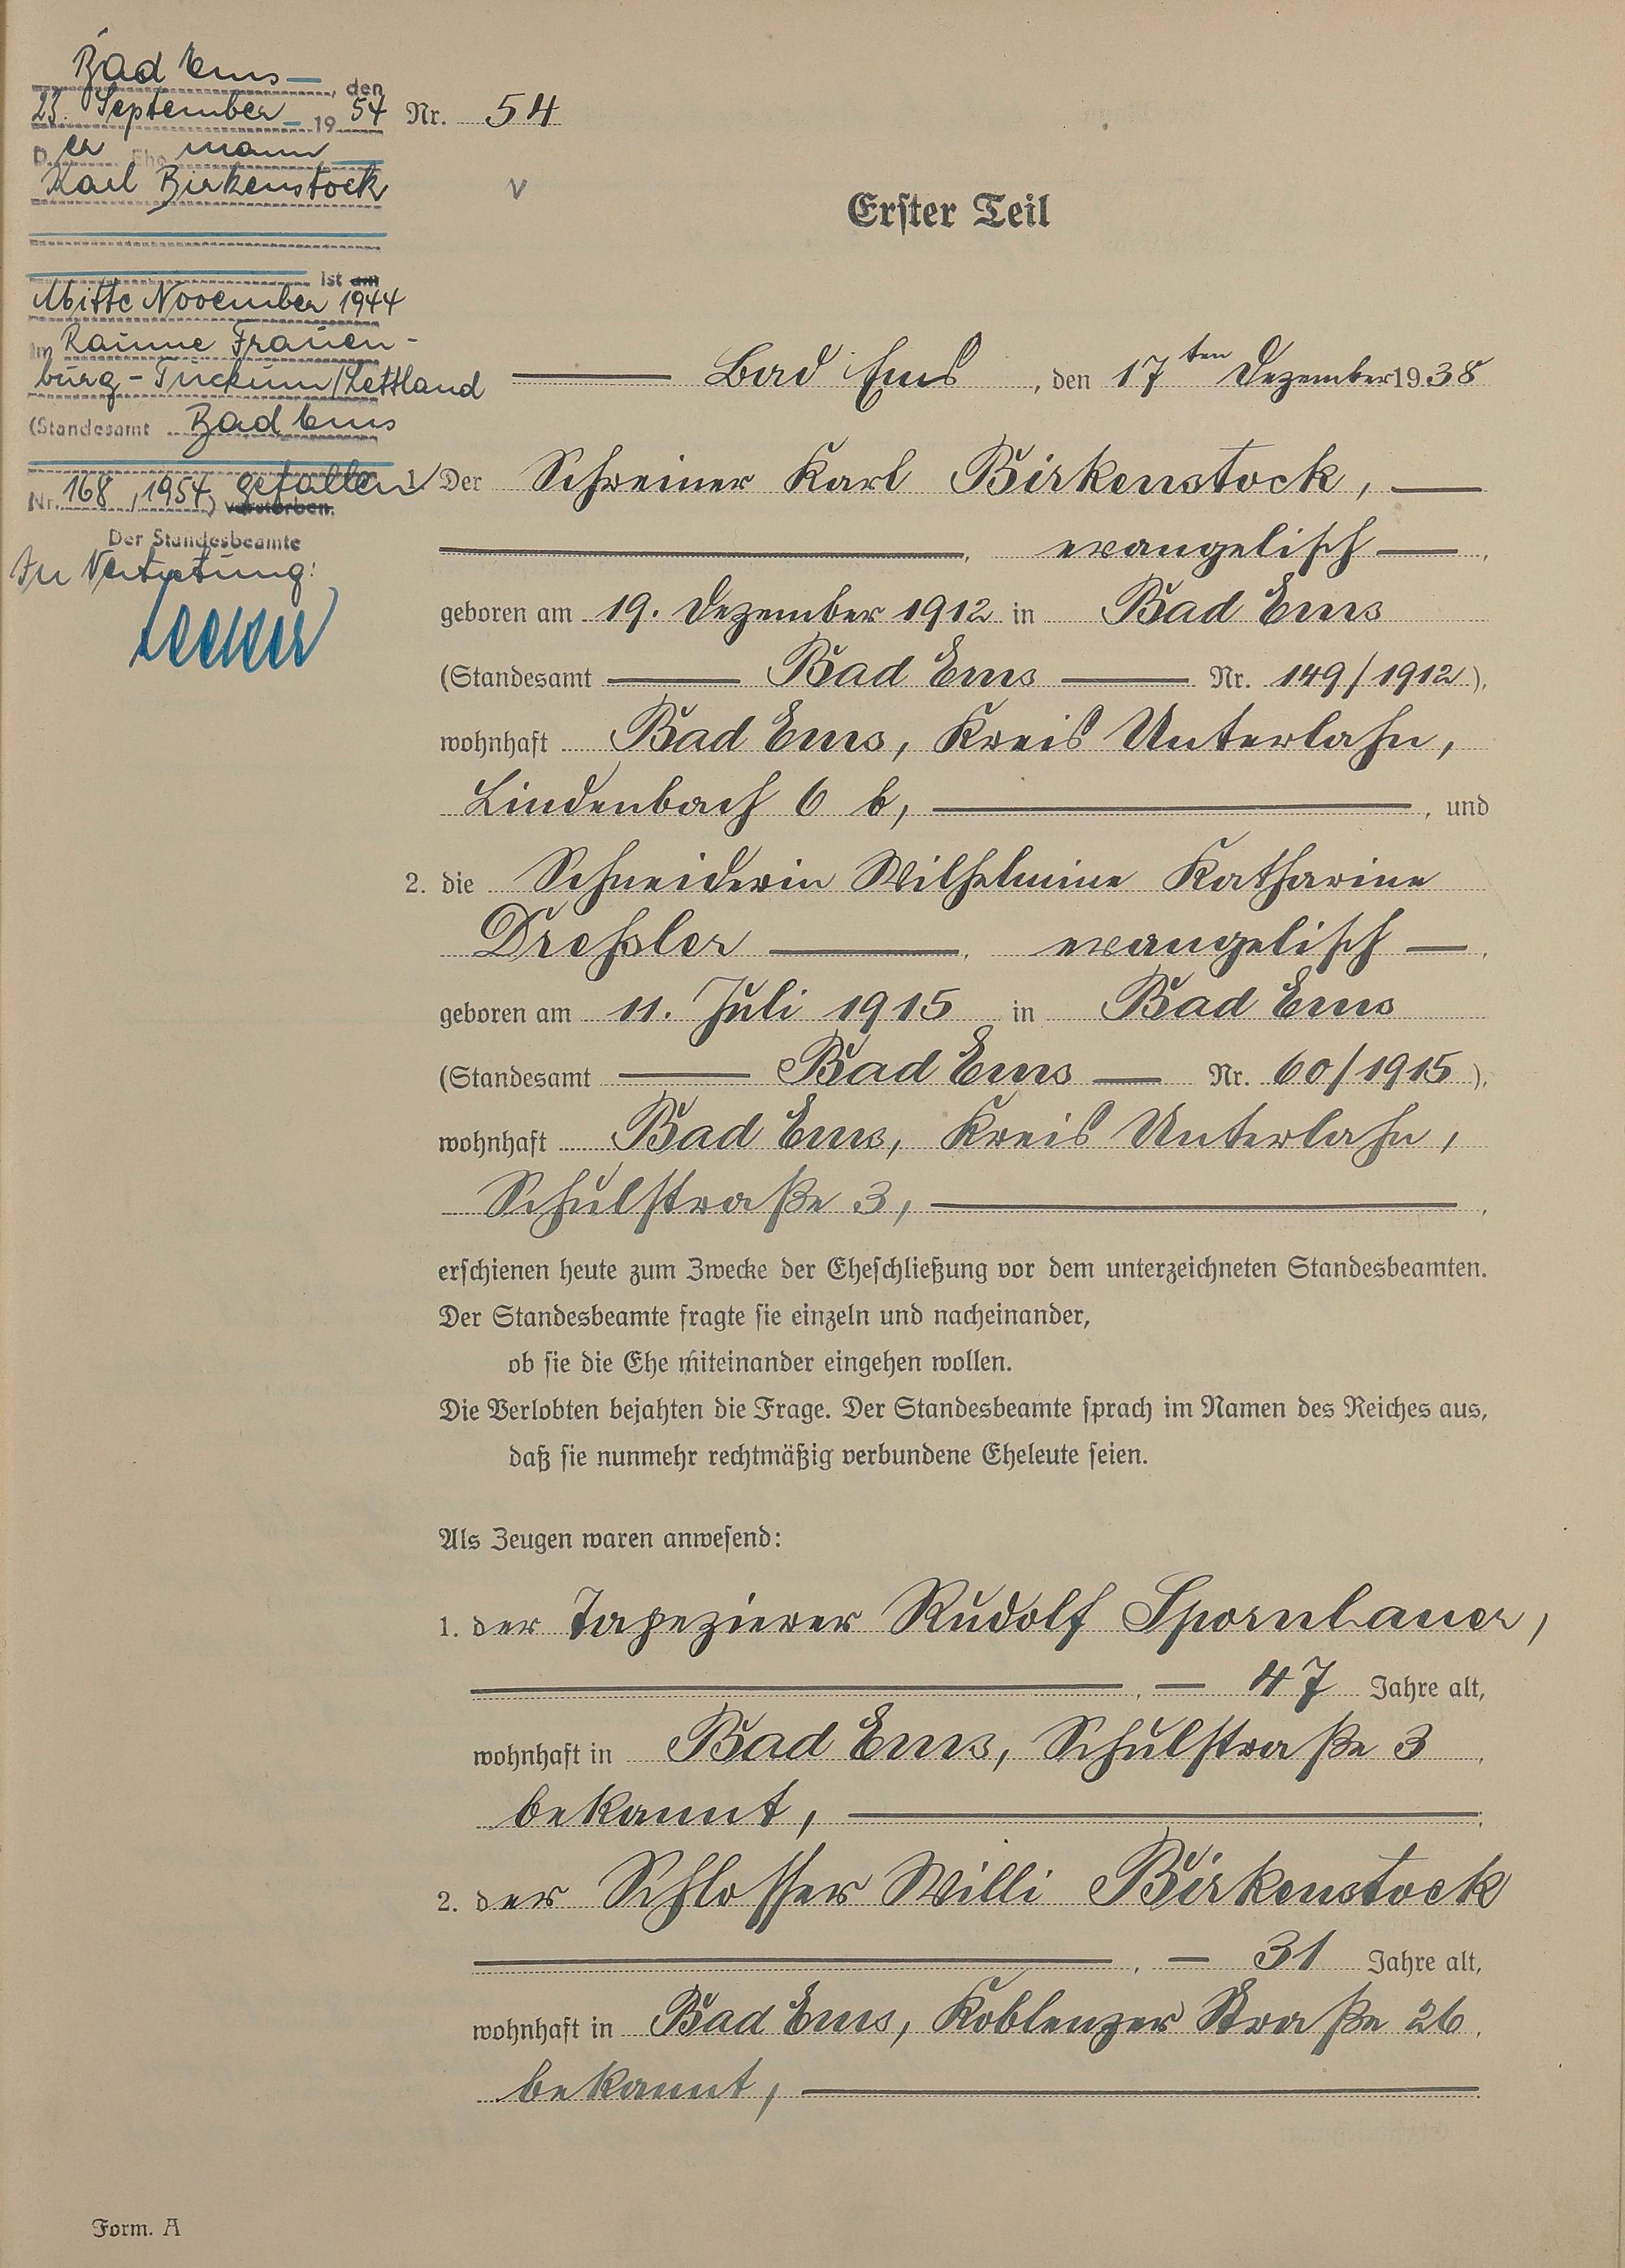 Bad Ems, den
23. September 1954
Der Ehemann
Karl Birkenstock
ist am
Mitte November 1944
im Raume Frauen-
burg-Tuckum/Lettland
(Standesamt Bad Ems
Nr. 168, 1954) gefallen verstorben.
Der Standesbeamte
In Vertretung:
Nr. 54
Erster Teil
Bad Ems, den 17ten Dezember 1938
1. Der Schreiner Karl Birkenstock,
, evangelisch,
geboren am 19. Dezember 1912 in Bad Ems
(Standesamt Bad Ems Nr. 149/1912),
wohnhaft Bad Ems, Kreis Unterlahn,
Lindenbach 6 b, , und
2. die Schneiderin Wilhelmine Katharine
Dreßler, evangelisch,
geboren am 11. Juli 1915 in Bad Ems
(Standesamt Bad Ems Nr. 60/1915),
wohnhaft Bad Ems, Kreis Unterlahn,
Schulstraße 3, ,
erschienen heute zum Zwecke der Eheschließung vor dem unterzeichneten Standesbeamten.
Der Standesbeamte fragte sie einzeln und nacheinander,
ob sie die Ehe miteinander eingehen wollen.
Die Verlobten bejahten die Frage. Der Standesbeamte sprach im Namen des Reiches aus,
daß sie nunmehr rechtmäßig verbundene Eheleute seien.
Als Zeugen waren anwesend:
1. der Tapezierer Rudolf Spornhauer,
, 47 Jahre alt,
wohnhaft in Bad Ems, Schulstraße 3,
bekannt, ;
2. der Schlosser Willi Birkenstock
, 31 Jahre alt,
wohnhaft in Bad Ems, Koblenzer Straße 26,
bekannt, .
Form. A